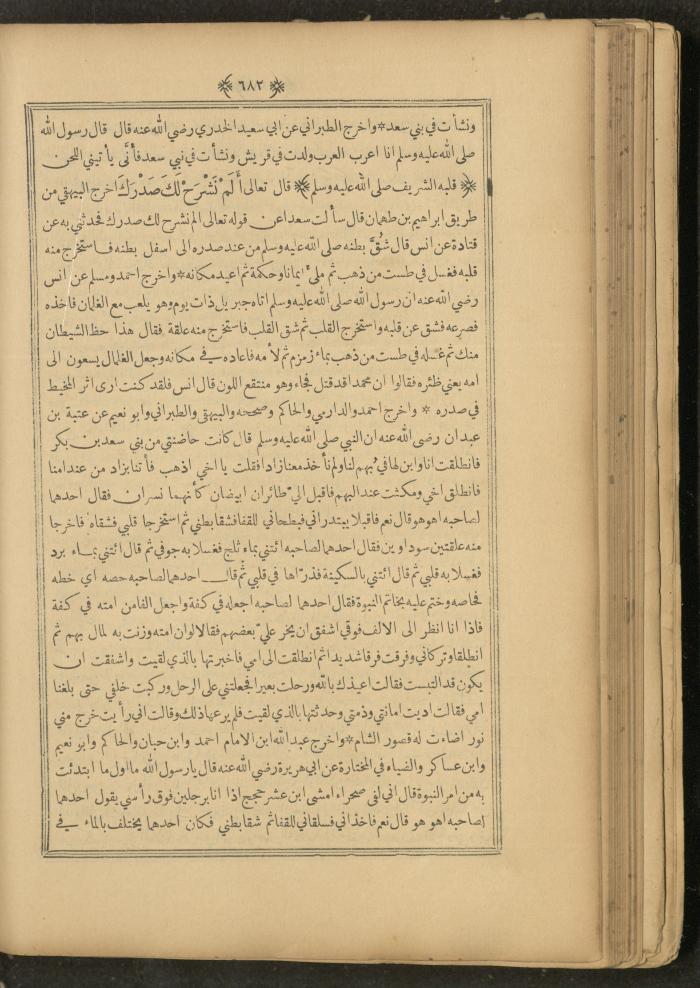 ٦٨٢
ونشأت في بني سعد * واخرج الطبراني عن ابي سعيد الخدري رضي الله عنه قال قال رسول الله
صلى الله عليه وسلم انا اعرب العرب ولدت في قريش ونشأت في بني سعد فأنَّى يأتيني اللحن
﴿ قلبه الشريف صلى الله عليه وسلم ﴾ قال تعالى أَلَمْ نَشْرَحْ لَكَ صَدْرَكَ اخرج البيهقي من
طريق ابراهيم بن طهمان قال سألت سعدا عن قوله تعالى الم نشرح لك صدرك فحدثني به عن
قتادة عن انس قال شُقَّ بطنه صلى الله عليه وسلم من عند صدره الى اسفل بطنه فاستخرج منه
قلبه فغسل في طست من ذهب ثم ملئ ايمانا وحكمة ثم اعيد مكانه * واخرج احمد ومسلم عن انس
رضي الله عنه ان رسول الله صلى الله عليه وسلم اتاه جبريل ذات يوم وهو يلعب مع الغلمان فاخذه
فصرعه فشق عن قلبه واستخرج القلب ثم شق القلب فاستخرج منه علقة فقال هذا حظ الشيطان
منك ثم غسله في طست من ذهب بماء زمزم ثم لأمه فاعاده في مكانه وجعل الغلمال يسعون الى
امه يعني ظئره فقالوا ان محمدا قد قتل فجاء وهو منتقع اللون قال انس فلقد كنت ارى اثر المخيط
في صدره * واخرج احمد والدارمي والحاكم وصححه والبيهقي والطبراني وابو نعيم عن عتبة بن
عبدان رضي الله عنه ان النبي صلى الله عليه وسلم قال كانت حاضنتي من بني سعد بن بكر
فانطلقت انا وابن لها في بُهم لنا ولم نأخذ معنا زادا فقلت يا اخي اذهب فأتنا بزاد من عند امنا
فانطلق اخي ومكثت عند البهم فاقبل اليّ طائران ابيضان كأنهما نسران فقال احدهما
لصاحبه اهو هو قال نعم فاقبلا يبتدراني فبطحاني للقفا فشقا بطني ثم استخرجا قلبي فشقاه فاخرجا
منه علقتين سوداوين فقال احدهما لصاحبه ائتني بماء ثلج فغسلا به جوفي ثم قال ائتني بماء برد
فغسلا به قلبي ثم قال ائتني بالسكينة فذرّاها في قلبي ثم قال احدهما لصاحبه حصه اي خطه
فحاصه وختم عليه بخاتم النبوة فقال احدهما لصاحبه اجعله في كفة واجعل الفا من امته في كفة
فاذا انا انظر الى الالف فوقي اشفق ان يخر عليّ بعضهم فقالا لو ان امته وزنت به لمال بهم ثم
انطلقا وتركاني وفرقت فرقا شديدا ثم انطلقت الى امي فاخبرتها بالذي لقيت واشفقت ان
يكون قد التبست فقالت اعيذك بالله ورحلت بعيرا فجعلتني على الرحل وركبت خلفي حتى بلغنا
امي فقالت اديت امانتي وذمتي وحدثتها بالذي لقيت فلم يرعها ذلك وقالت اني رأيت خرج مني
نور اضاءت له قصور الشام * واخرج عبد الله ابن الامام احمد وابن حبان والحاكم وابو نعيم
وابن عساكر والضياء في المختارة عن ابي هريرة رضي الله عنه قال يا رسول الله ما اول ما ابتدئت
به من امر النبوة قال اني لفي صحراء امشى ابن عشر حجج اذا انا برجلين فوق رأسي يقول احدهما
لصاحبه اهو هو قال نعم فاخذاني فسلقاني للقفا ثم شقا بطني فكان احدهما يختلف بالماء في